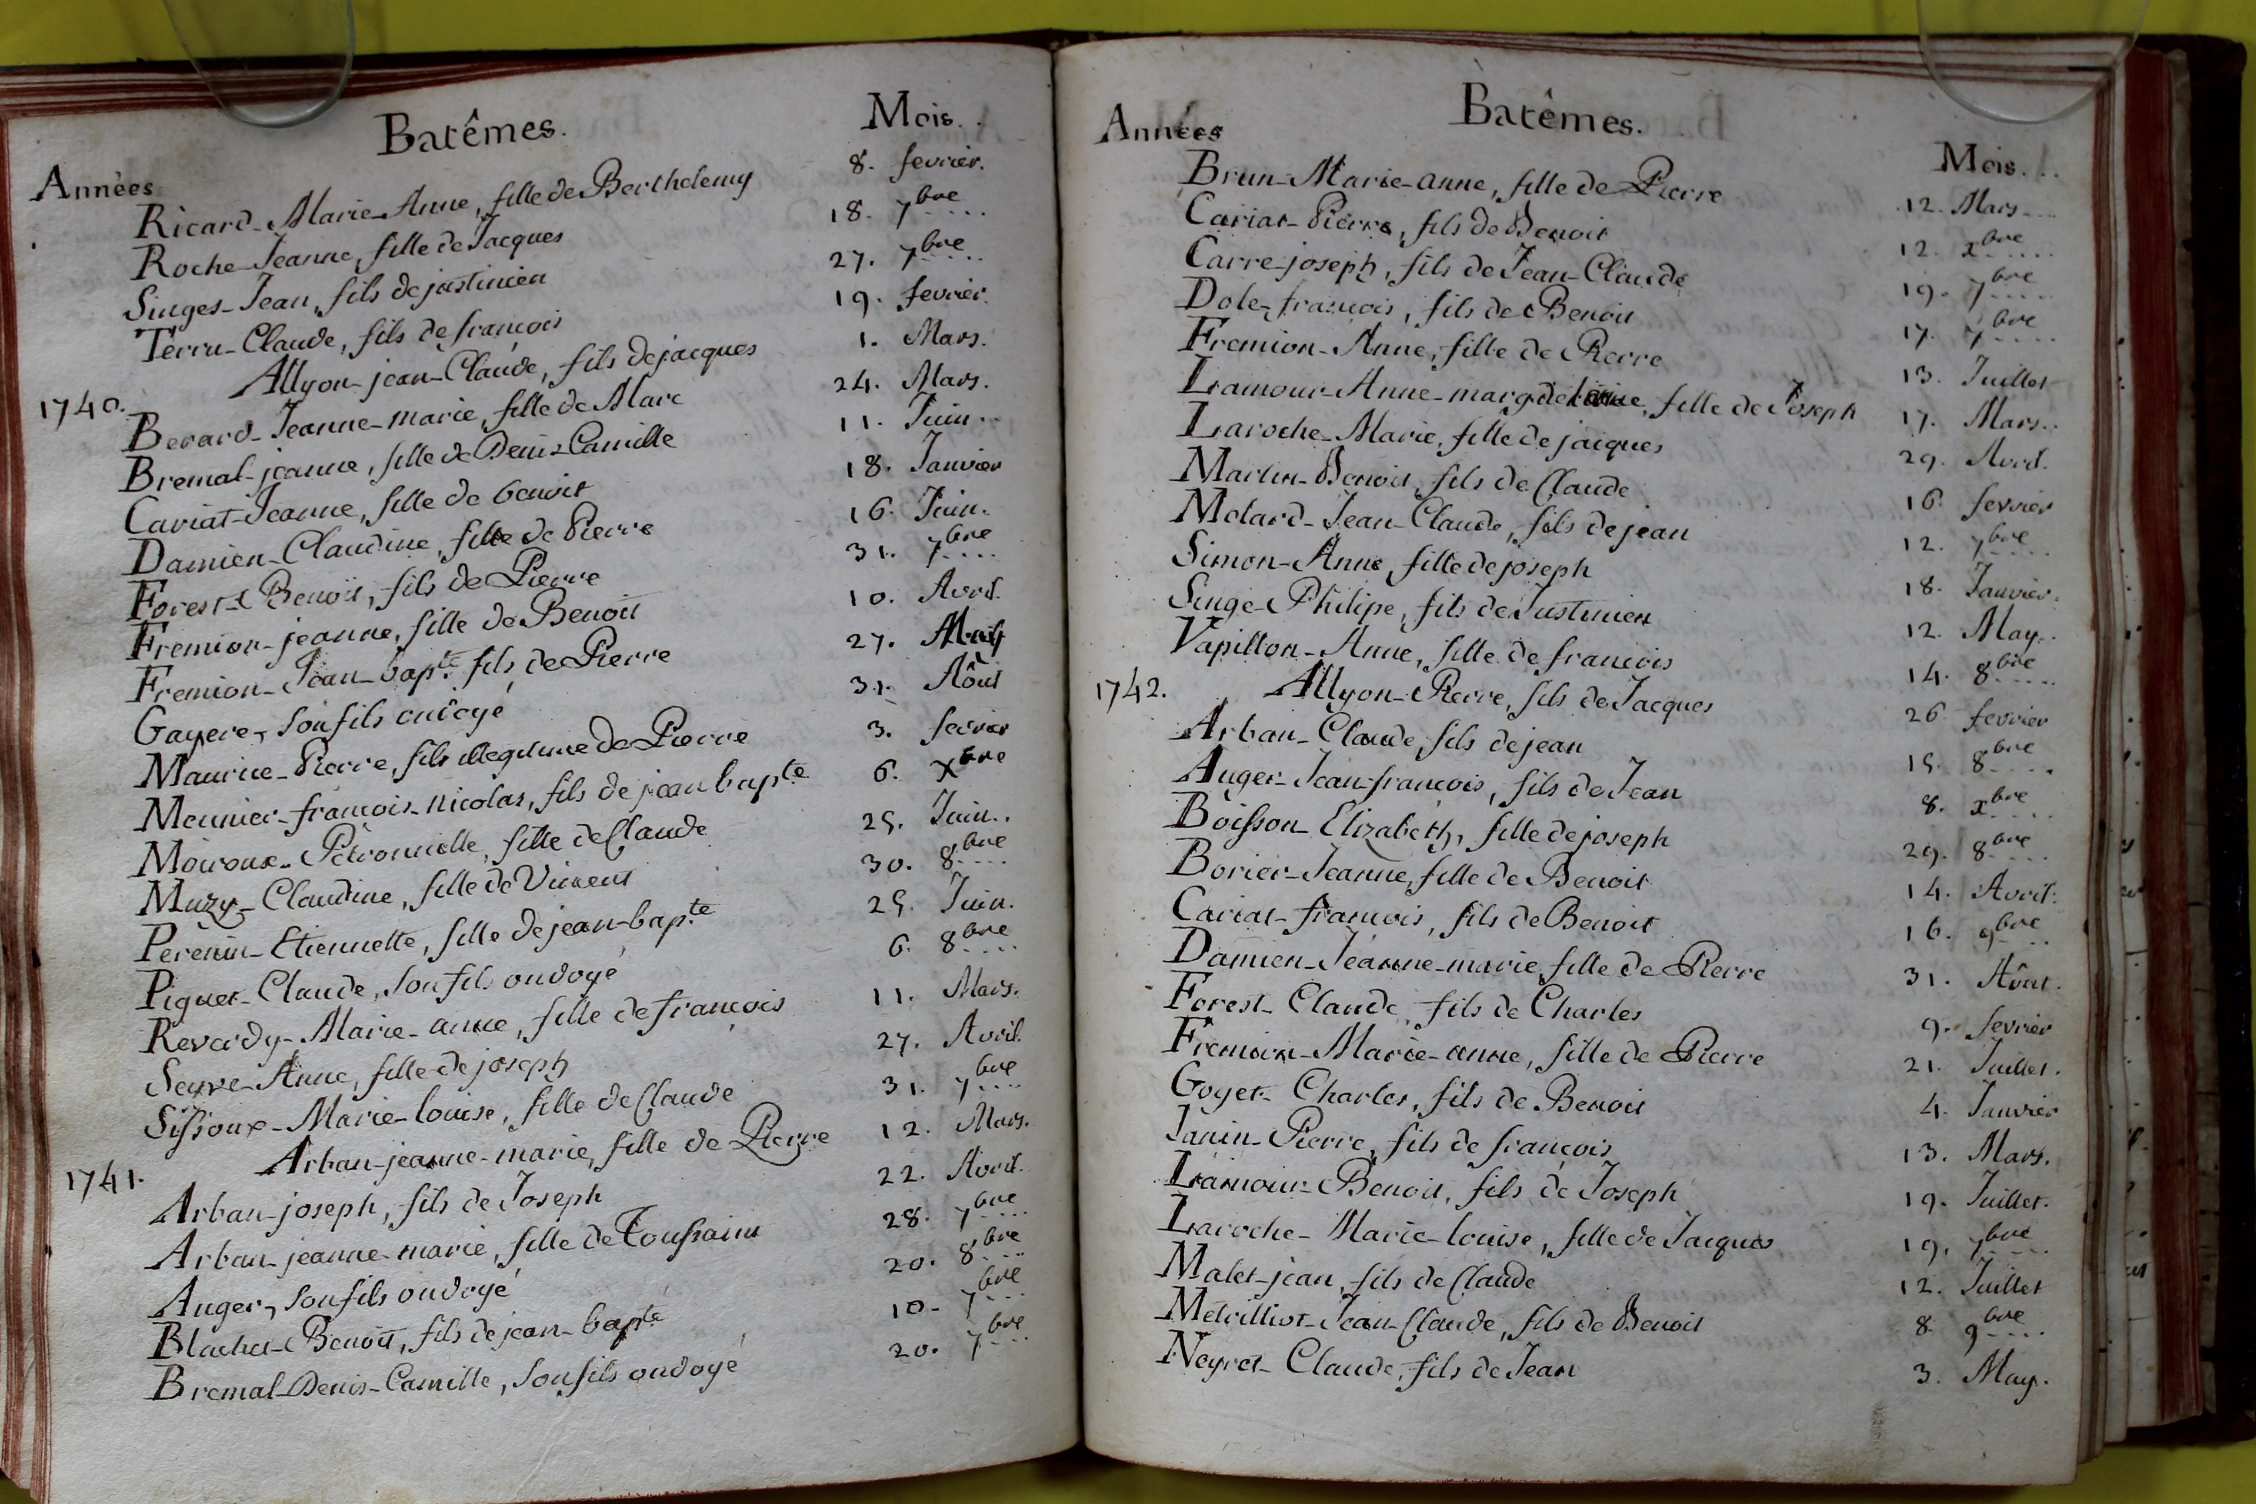 Batêmes. Mois.
Années
Ricard-Marie-Anne, fille de Berthelemy 8. fevrier.
Roche-Jeanne, fille de Jacques 18. 7bre
Singes-Jean, fils de justinien 27. 7bre
Terru-Claude, fils de françois 19. fevrier.
1740. Allyon-jean-Claude, fils de jacques 1. Mars.
Berard-Jeanne-marie, fille de Marc 24. Mars.
Bremal-jeanne, fille de Denis Camille 11. Juin.
Cariat-Jeanne, fille de benoit 18. Janvier
Damien-Claudine, fille de Pierre 16. Juin.
Forest-Benoit, fils de Pierre 31. 7bre
Fremion-jeanne, fille de Benoit 10. Avril.
Fremion-Jean-bapte. fils de Pierre 27.
Gayere, son fils ondoyé 31. Aôut
Maurice-Pierre, fils illegitime de Pierre 3. fevrier
Meunier-françois-nicolas, fils de jean bapte 6. Xbre
Moiroux-Petronnille, fille de Claude 25. Juin.
Muzy-Claudine, fille de Vincent 30. 8bre
Perenin-Etiennette, fille de jean-bapte 25. Juin.
Piquet-Claude, son fils ondoyé 6. 8bre
Reverdy-Marie-anne, fille de françois 11. Mars.
Seyve-Anne, fille de joseph 27. Avril.
Sissoux-Marie-louise, fille de Claude 31. 7bre
1741. Arban-jeanne-marie, fille de Pierre 12. Mars.
Arban-joseph, fils de Joseph 22. Avril.
Arban-jeanne-marie, fille de Toussaint 28. 7bre
Auger, son fils ondoyé 20. 8bre
Blachet-Benoit, fils de jean-bapte 10. 7bre
Bremal-Denis-Camille, son fils ondoyé 20. 7bre
Années Batêmes. Mois.
Brun-Marie-anne, fille de Pierre 12. Mars
Cariat-Pierre, fils de Benoit 12. xbre
Carre-joseph, fils de Jean-Claude 19. 7bre
Dole-françois, fils de Benoit 17. 7bre
Fremion-Anne, fille de Pierre 13. Juillet
Lamour-Anne-marg, fille de Joseph 17. Mars.
Laroche-Marie, fille de jacques 29. Avril.
Martin-Benoit, fils de Claude 16. fevrier
Molard-Jean-Claude, fils de jean 12. 7bre
Simon-Anne, fille de joseph 18. Janvier.
Singe-Philipe, fils de Justinien 12. May.
Vapillon-Anne, fille de françois 14. 8bre
1742. Allyon-Pierre, fils de Jacques 26 fevrier
Arban-Claude, fils de jean 15. 8bre
Auger-Jean-françois, fils de Jean 8. xbre
Boisson-Elizabeth, fille de joseph 29. 8bre
Borier-Jeanne, fille de Benoit 14. Avril.
Cariat-françois, fils de Benoit 16. 9bre
Damien-Jeanne-marie, fille de Pierre 31. Aôut.
Forest-Claude, fils de Charles 9. fevrier
Fremion-Marie-anne, fille de Pierre 21. Juillet.
Goyet-Charles, fils de Benoit 4. Janvier
Janin-Pierre, fils de françois 13. Mars.
Lamour-Benoit, fils de Joseph 19. Juillet.
Laroche-Marie-louise, fille de Jacques 19. 7bre
Malet-jean, fils de Claude 12. Juillet
Metrilliot-Jean-Claude, fils de Benoit 8 9bre
Neyret-Claude, fils de Jean 3. May.